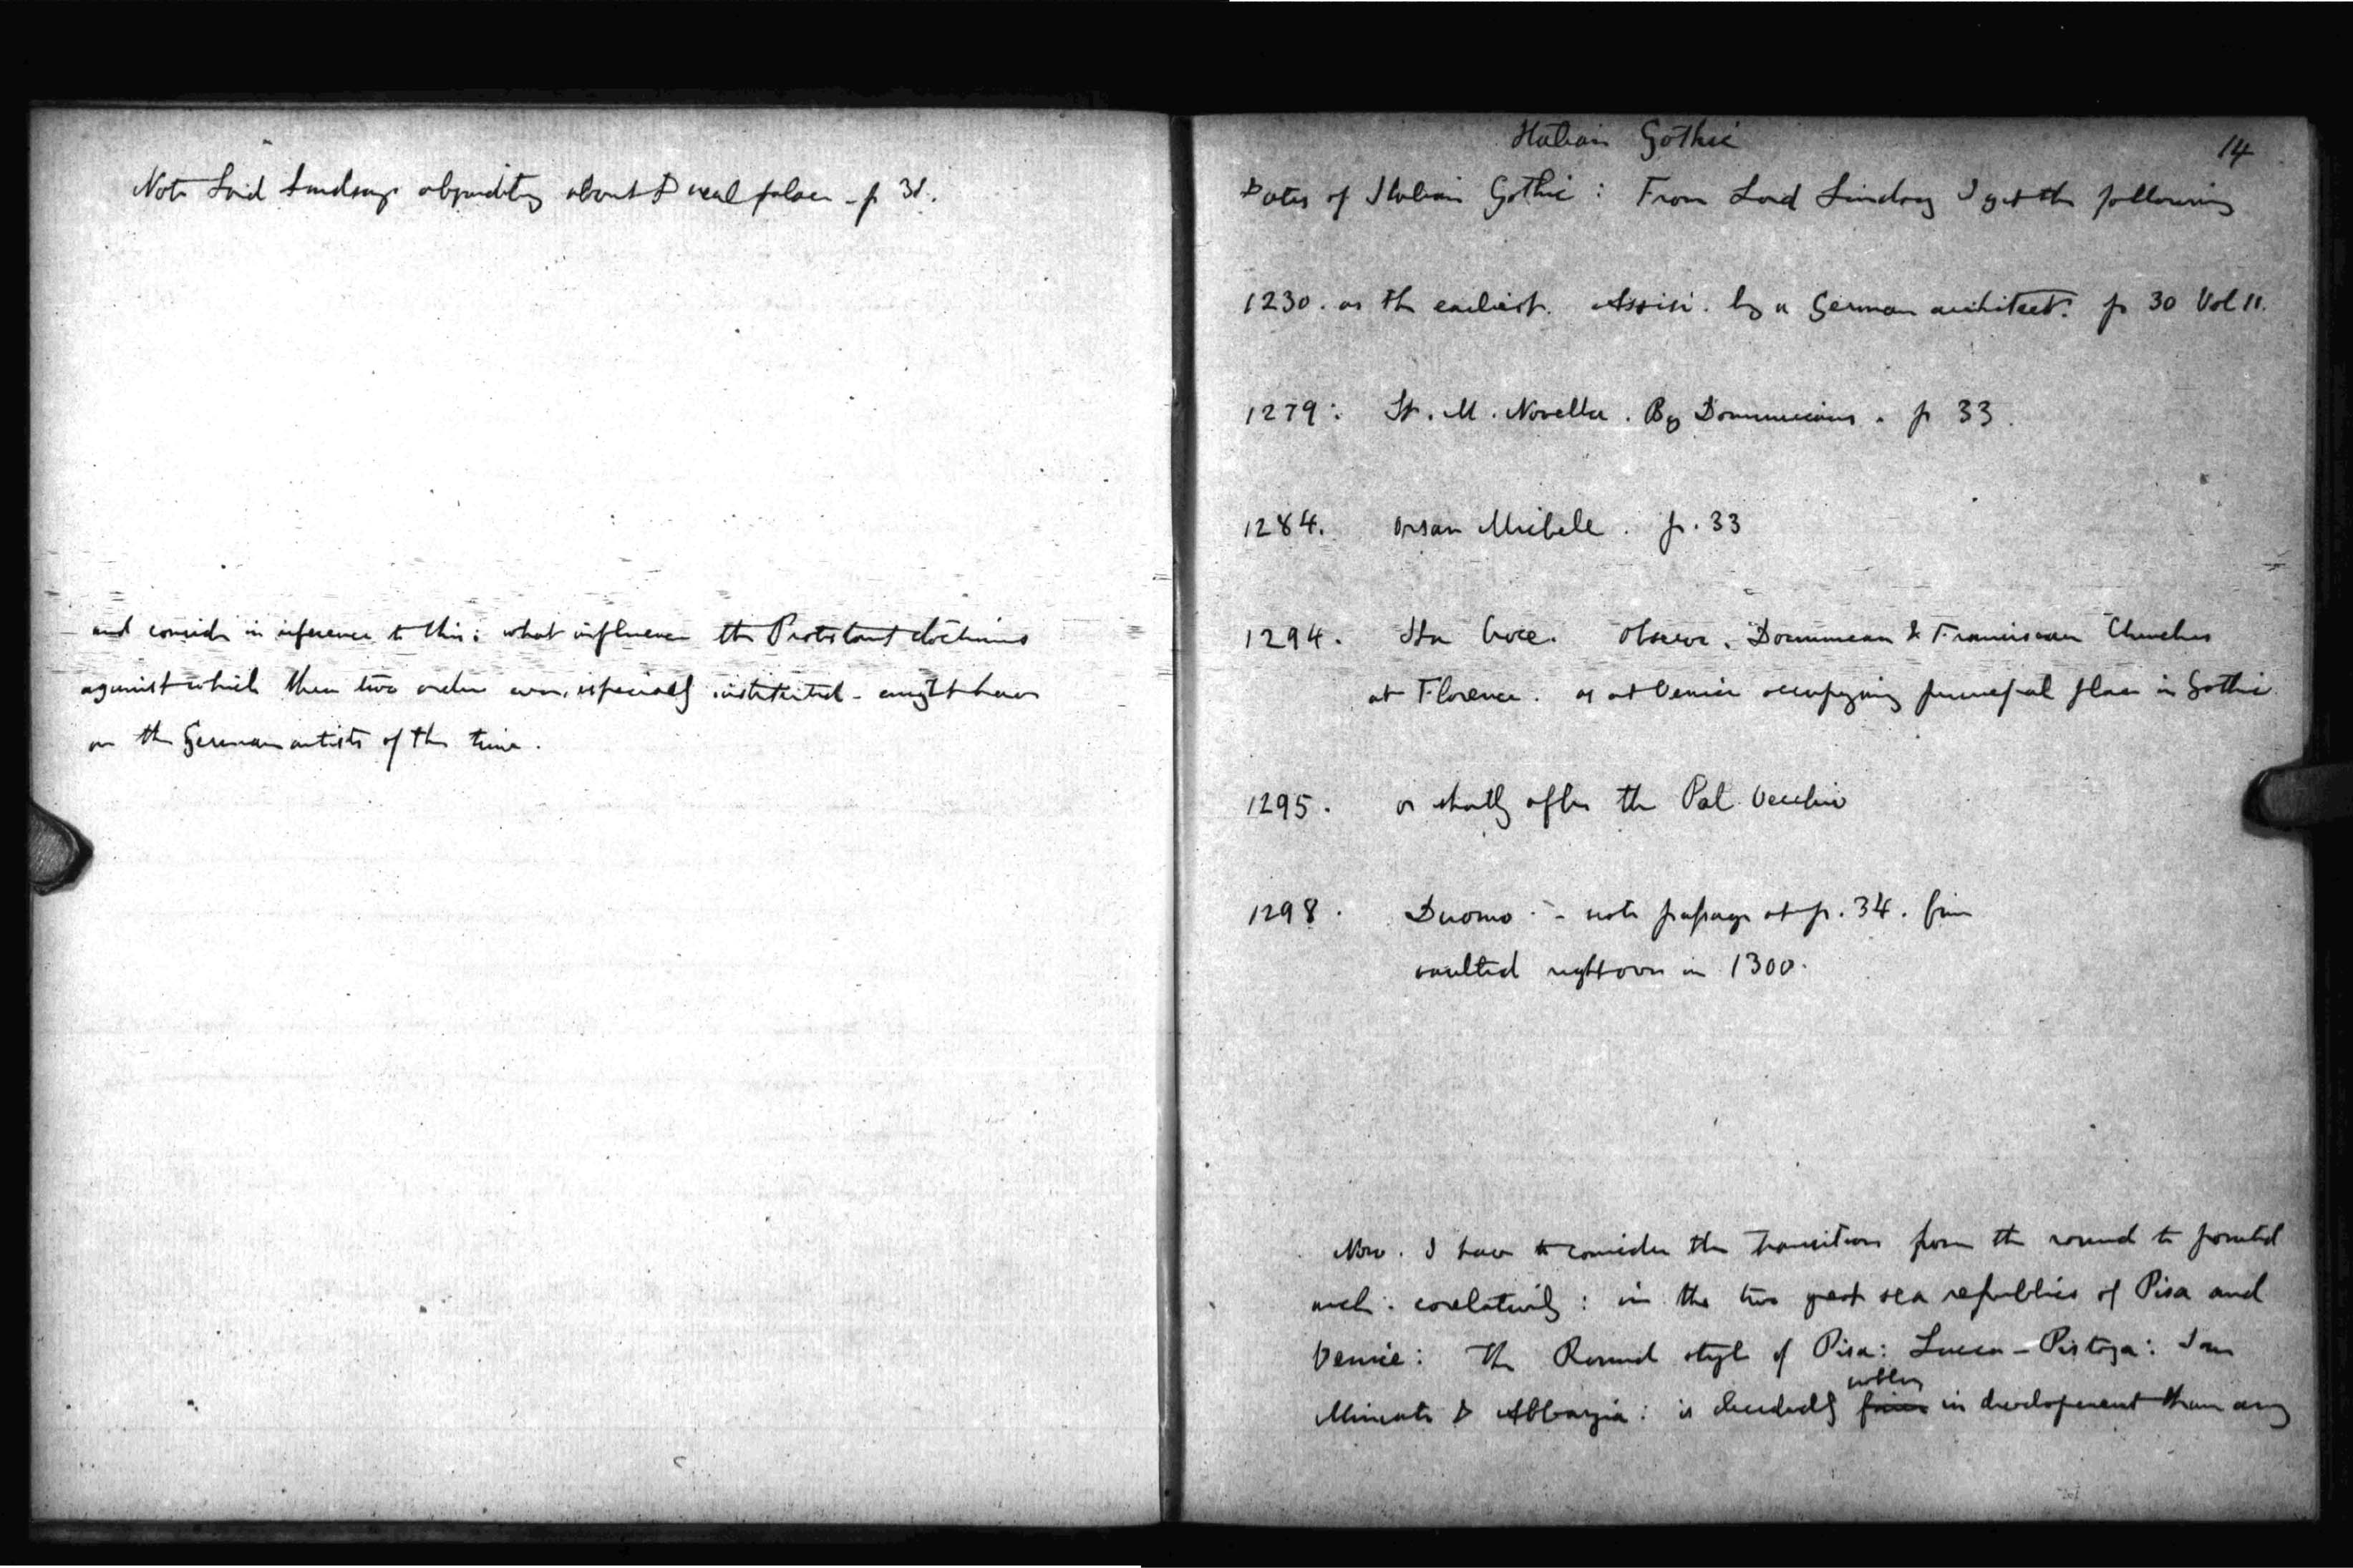 Note Lord Lindsays absurdity about Ducal palace - p 31.
and consider in reference to this: what influence the Protestant doctrines
against which these two orders were especially instituted - might have
on the German artists of the time.
Italian Gothic
14
Dates of Italian Gothic: From Lord Lindsay I get the following
1230. as the earliest. Assisi. by a German architect: p 30 Vol 11.
1279: St. M. Novella. By Dominicans. p 33.
1284. Orsan Michele. p. 33
1294. Sta Croce. Observe. Dominican & Franciscan Churches
at Florence. as at Venice occupying principal place in Gothic
1295. or shortly after the Pal Vecchio
1298. Duomo - note passage at p. 34.
vaulted right over in 1300.
Now. I have to consider the transitions from the round to pointed
arch. corelatively: in the two great sea republics of Pisa and
Venice: The Round style of Pisa: Lucca - Pistoja: San
Miniato & Abbazia: is decidedly nobler in development than any